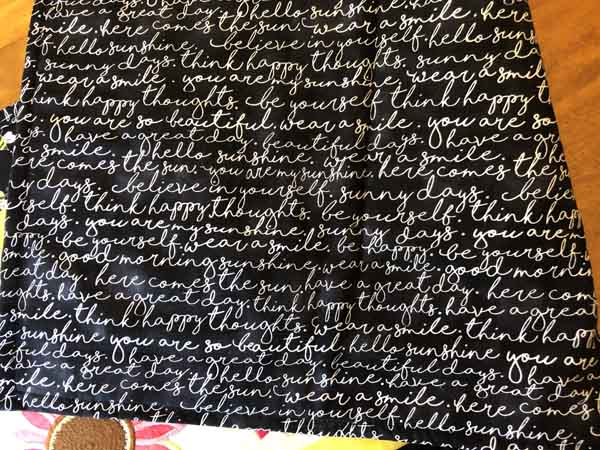 beautiful days. have a great day. hello sunshine. wear a smile. here
smile. here comes the sun. wear a smile. here comes
of. hello sunshine. believe in yourself. hello sunshine.
s. sunny days. think happy thoughts. sunny days.
wear a smile. you are my sunshine. wear a smile.
think happy thoughts. be yourself. think happy
le. you are so beautiful. wear a smile. you are so
days. have a great day. beautiful days. have a gre
a smile. hello sunshine. wear a smile.
here comes the sun. you are my sunshine. here comes the
ny days. believe in yourself. sunny days. believe
rself. think happy thoughts. be yourself. think happ
days. you are my sunshine. sunny days. you are
be yourself. wear a smile. be happy. be yourself.
smile. good morning sunshine. wear a smile. good mornin
great day. here comes the sun. have a great day. here com
ghts. have a great day. think happy thoughts. have a gre
smile. think happy thoughts. wear a smile. think happ
sunshine you are so beautiful hello sunshine you are
iful days. have a great day. beautiful days. have a
have a great day. hello sunshine. have a great day.
mile. here comes the sun. wear a smile. here comes
f. hello sunshine. believe in yourself. hello sunshine.
think happy thoughts. sunny days.